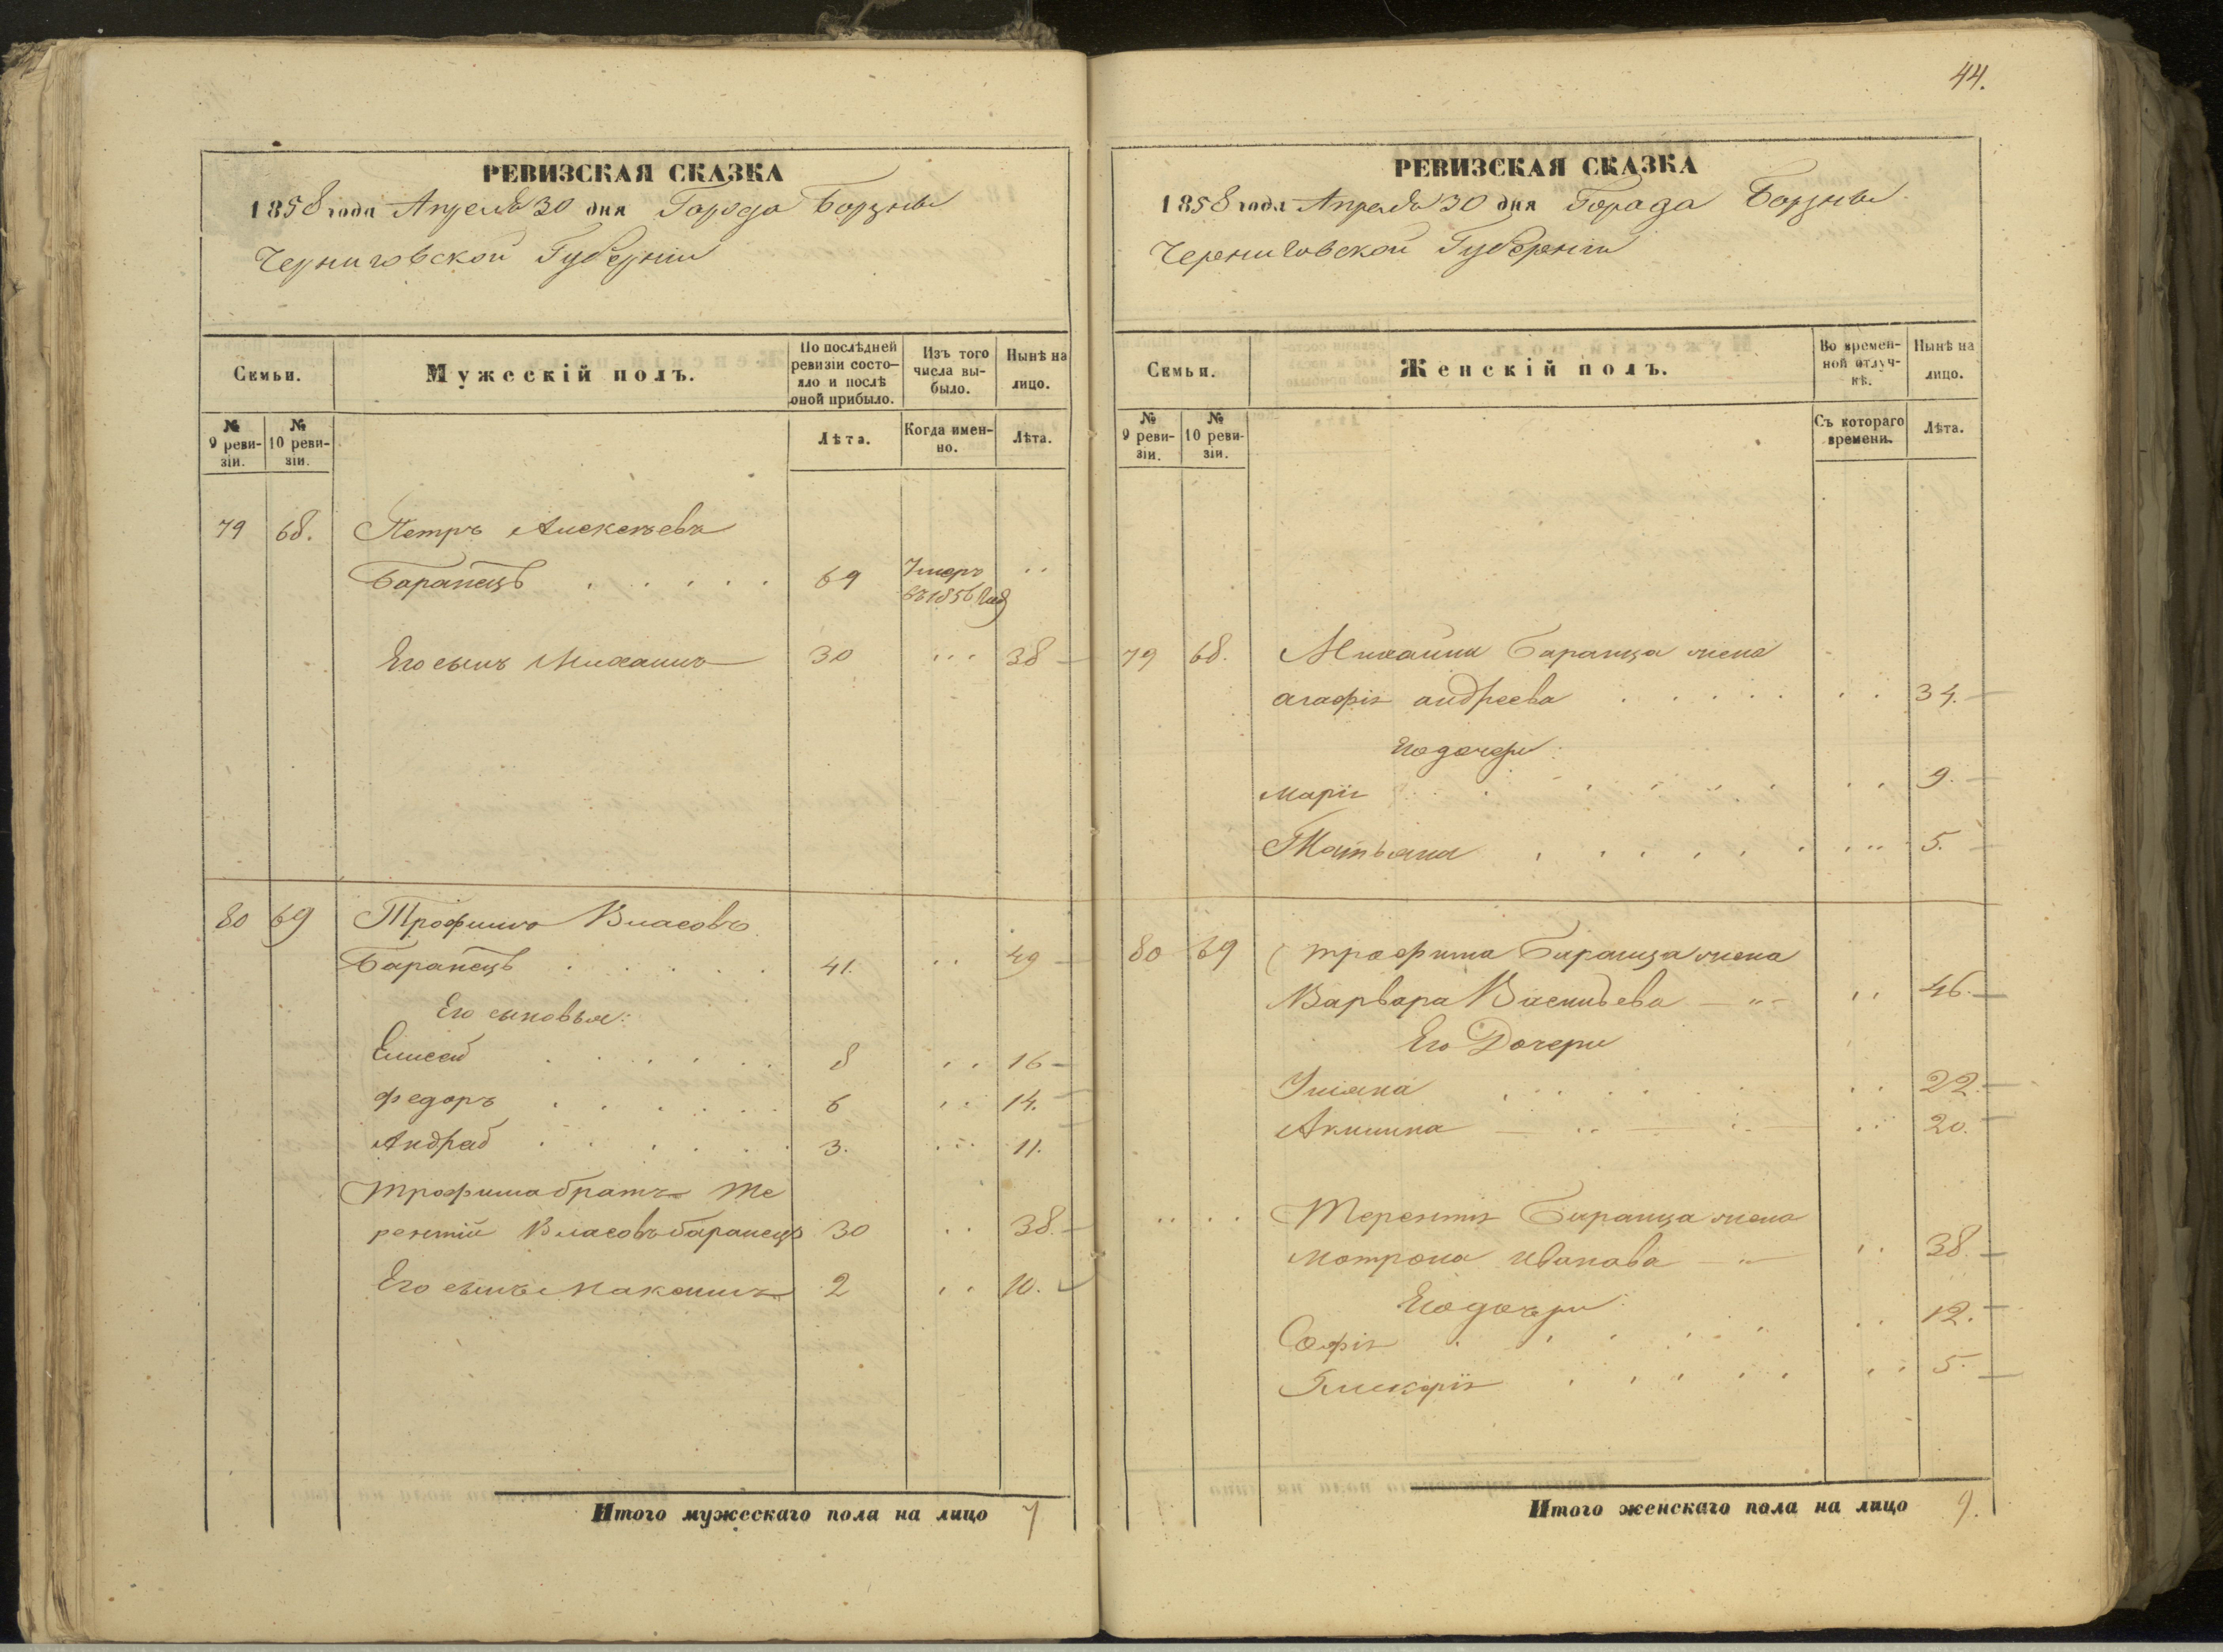 44.
РЕВИЗСКАЯ СКАЗКА
1858 года Апреля 30 дня Города Борзны
Черниговской Губерніи
Семьи.
Мужескій полъ.
По послѣдней
ревизіи состо-
яло и послѣ
оной прибыло.
Изъ того
числа вы-
было.
Нынѣ на
лицо.
№
9 реви-
зіи.
№
10 реви-
зіи.
Лѣта.
Когда имен-
но.
Лѣта.
79 68. Петръ Алексѣевъ
Баранецъ . . . . . 69 Умеръ
въ 1856 год
Его сынъ Михаилъ 30 38
80 69 Трофимъ Власовъ
Баранецъ . . . . . 41. 49
Его сыновья:
Елисей . . . . . 8 16
Федоръ . . . . . 6 14.
Андрей . . . . . 3. 11.
Трофима братъ Те
рентій Власовъ Баранецъ 30 38.
Его сынъ Максимъ 2 10.
Итого мужескаго пола на лицо 7
РЕВИЗСКАЯ СКАЗКА
1858 года Апреля 30 дня Города Борзны
Черниговской Губерніи
Семьи.
Женскій полъ.
Во времен-
ной отлуч-
кѣ.
Нынѣ на
лицо.
№
9 реви-
зіи.
№
10 реви-
зіи.
Съ котораго
времени.
Лѣта.
79 68. Михаила Баранца жена
агафія андреева . . . . . 34.
Его дочери:
марія . . . . . 9.
Татьяна . . . . . 5.
80 69 трофима Баранца жена
Варвара Васильева 46.
Его Дочери
Уляна . . . . . 22.
Акилина 20.
Терентія Баранца жена
мотрона иванова 38.
Его дочери:
Софія . . . . . 12.
Гликерія . . . . . 5.
Итого женскаго пола на лицо 9.